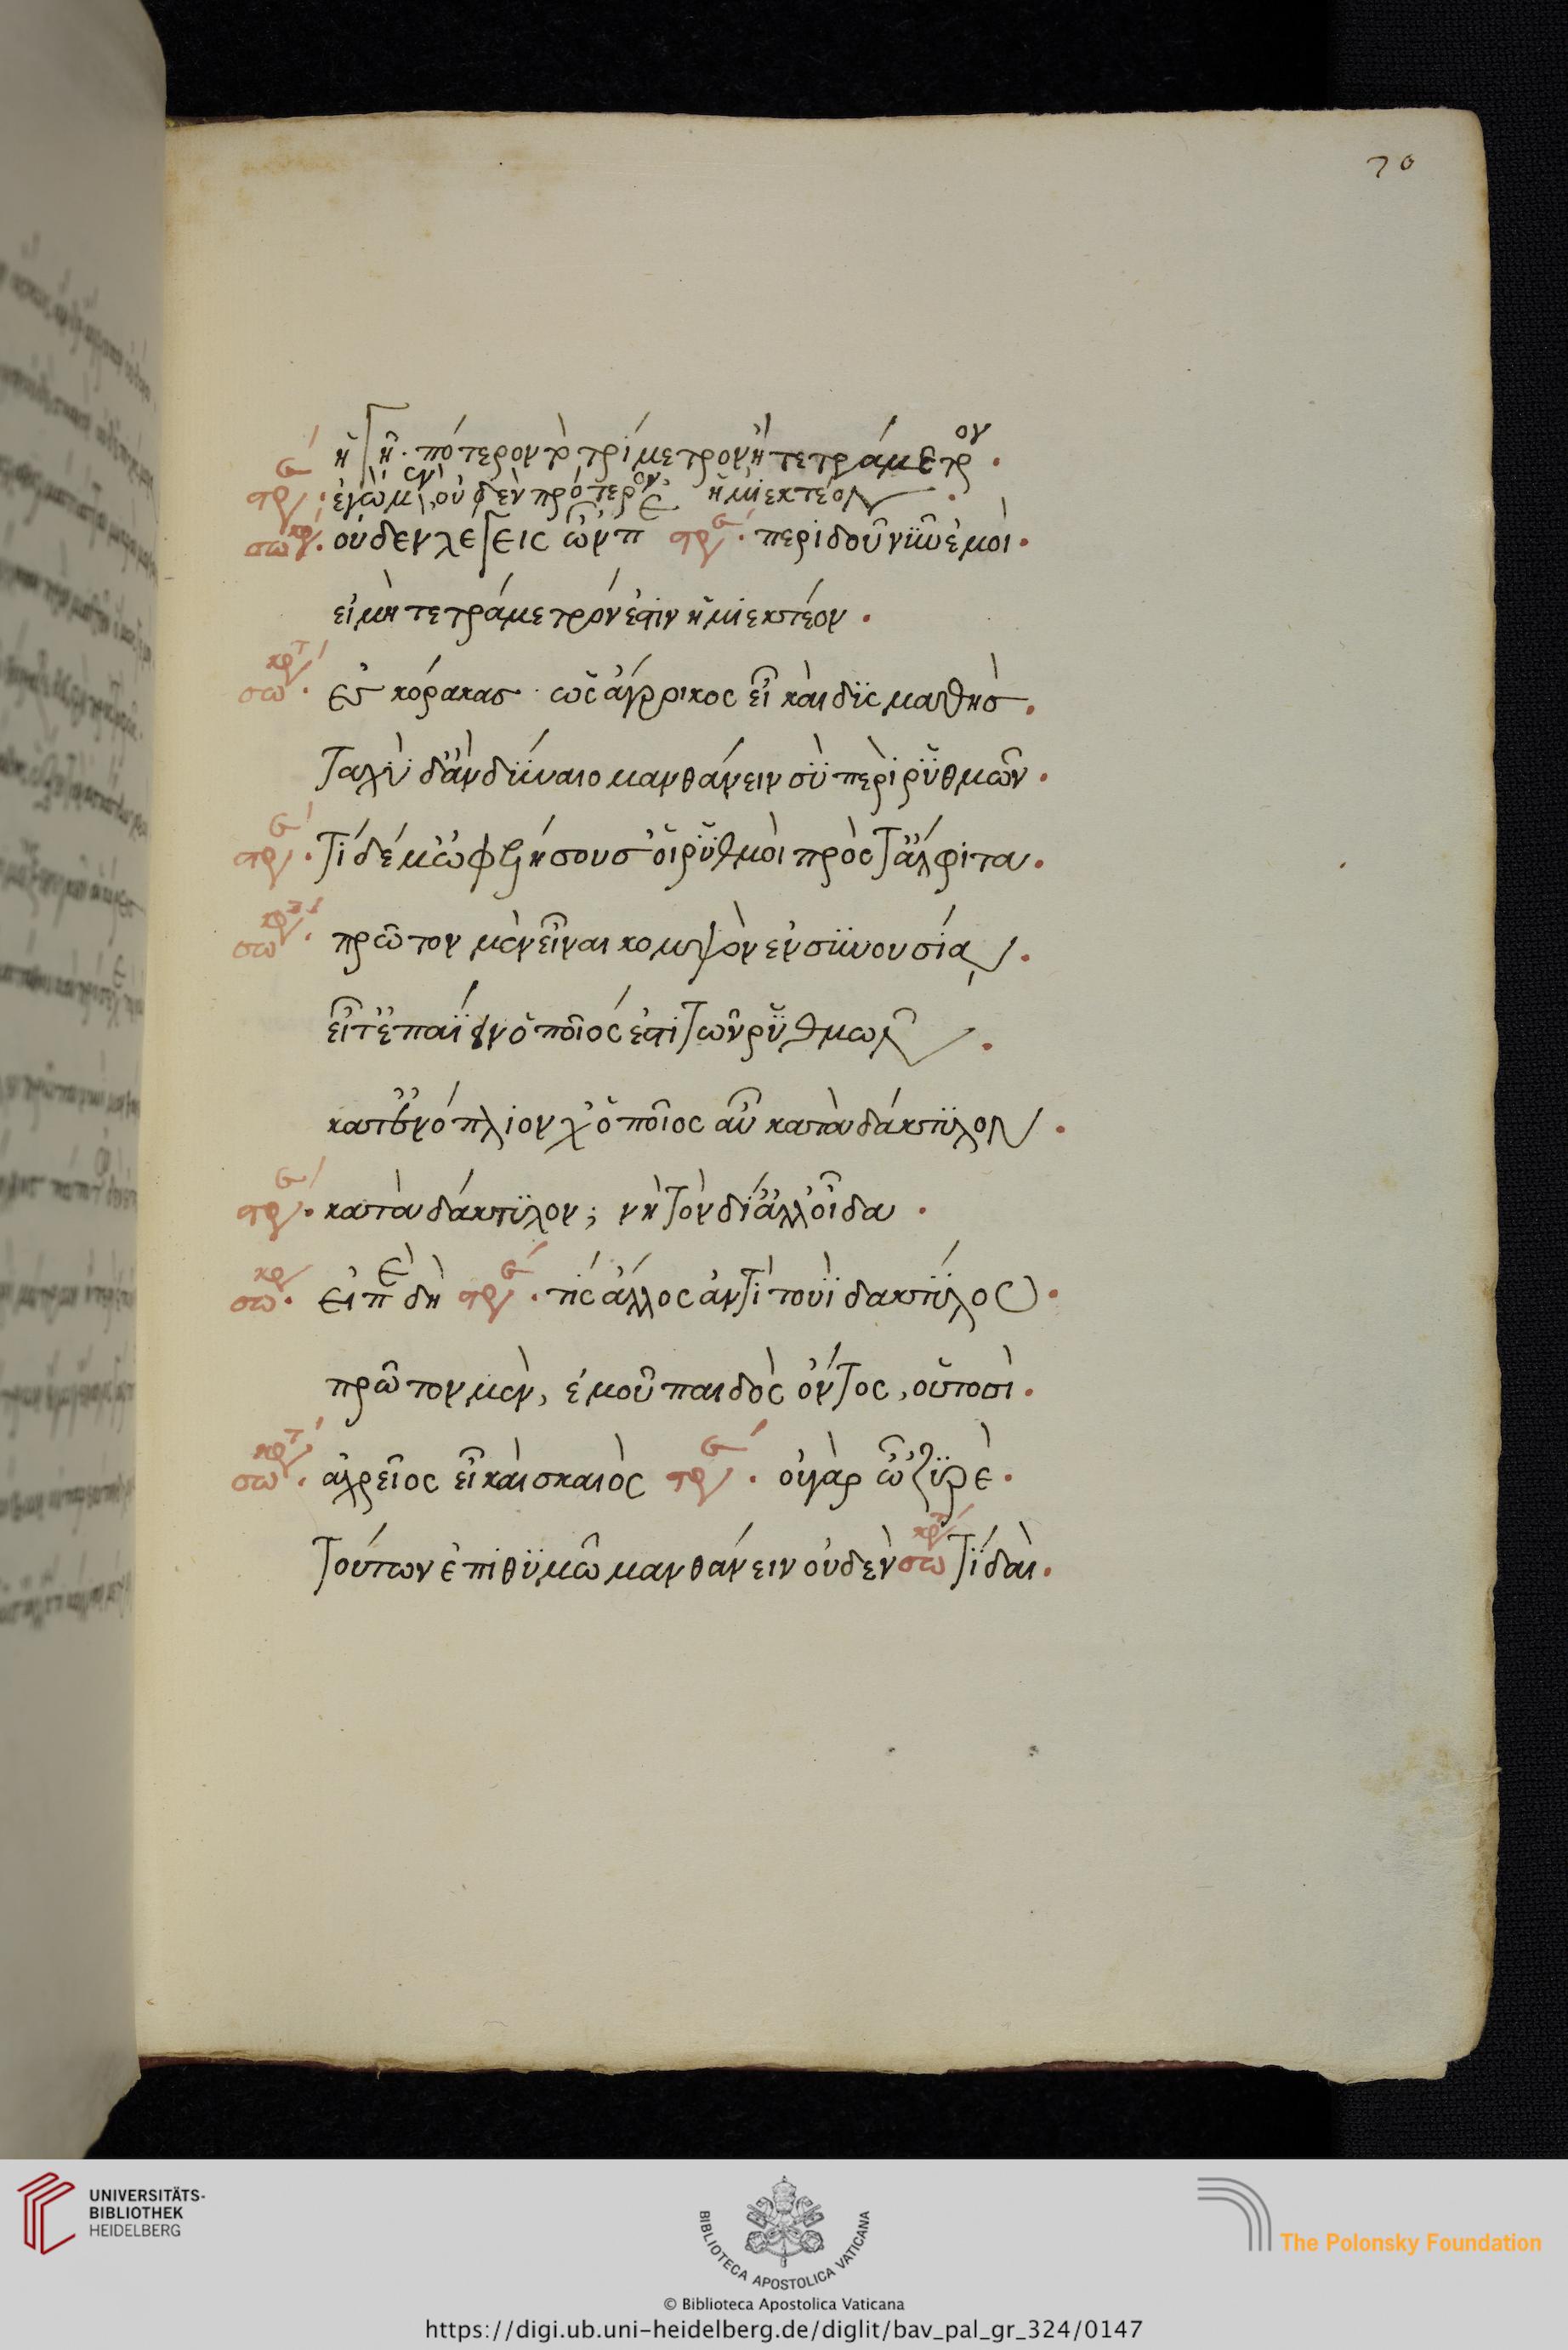 70
στρ ἡγῇ. πότερον τὸ τρίμετρον ἢ τετράμετρον.
στρ. ἐγὼ μὲν οὐδὲν πρότερον ἡμιεκτέον.
σωκρ. οὐδὲν λέγεις ὦνπε στρ. περίδου νυν ἐμοί.
εἰ μὴ τετράμετρόν ἐστιν ἡμιεκτέον.
σωκρτ. ἐς κόρακας. ὡς ἄγροικος εἶ καὶ δυσμαθής.
ταχὺ δ' ἂν δύναιο μανθάνειν σὺ περὶ ῥυθμῶν.
στρ. τί δέ μ' ὠφελήσουσ' οἱ ῥυθμοὶ πρὸς τἄλφιτα.
σωκρτ. πρῶτον μὲν εἶναι κομψὸν ἐν συνουσίᾳ.
εἶτ' ἐπαΐειν ὁποῖός ἐστι τῶν ῥυθμῶν.
κατ' ἐνόπλιον χ' ὁποῖος αὖ κατὰ δάκτυλον.
στρ. κατὰ δάκτυλον; νὴ τὸν δί' ἀλλ' οἶδα.
σωκρ. εἰπὲ δὴ στρ. τίς ἄλλος ἀντὶ τουῒ δακτύλος.
πρῶτον μὲν, ἐμοῦ παιδὸς ὄντος, οὑτοσί.
σωκρτ. ἀγρεῖος εἶ καὶ σκαιός στρ. οὐ γὰρ ὦζυρὲ.
τούτων ἐπιθυμῶ μανθάνειν οὐδέν σωκρτ τί δαί.
UNIVERSITÄTS-
BIBLIOTHEK
HEIDELBERG
BIBLIOTECA APOSTOLICA VATICANA
The Polonsky Foundation
© Biblioteca Apostolica Vaticana
https://digi.ub.uni-heidelberg.de/diglit/bav_pal_gr_324/0147